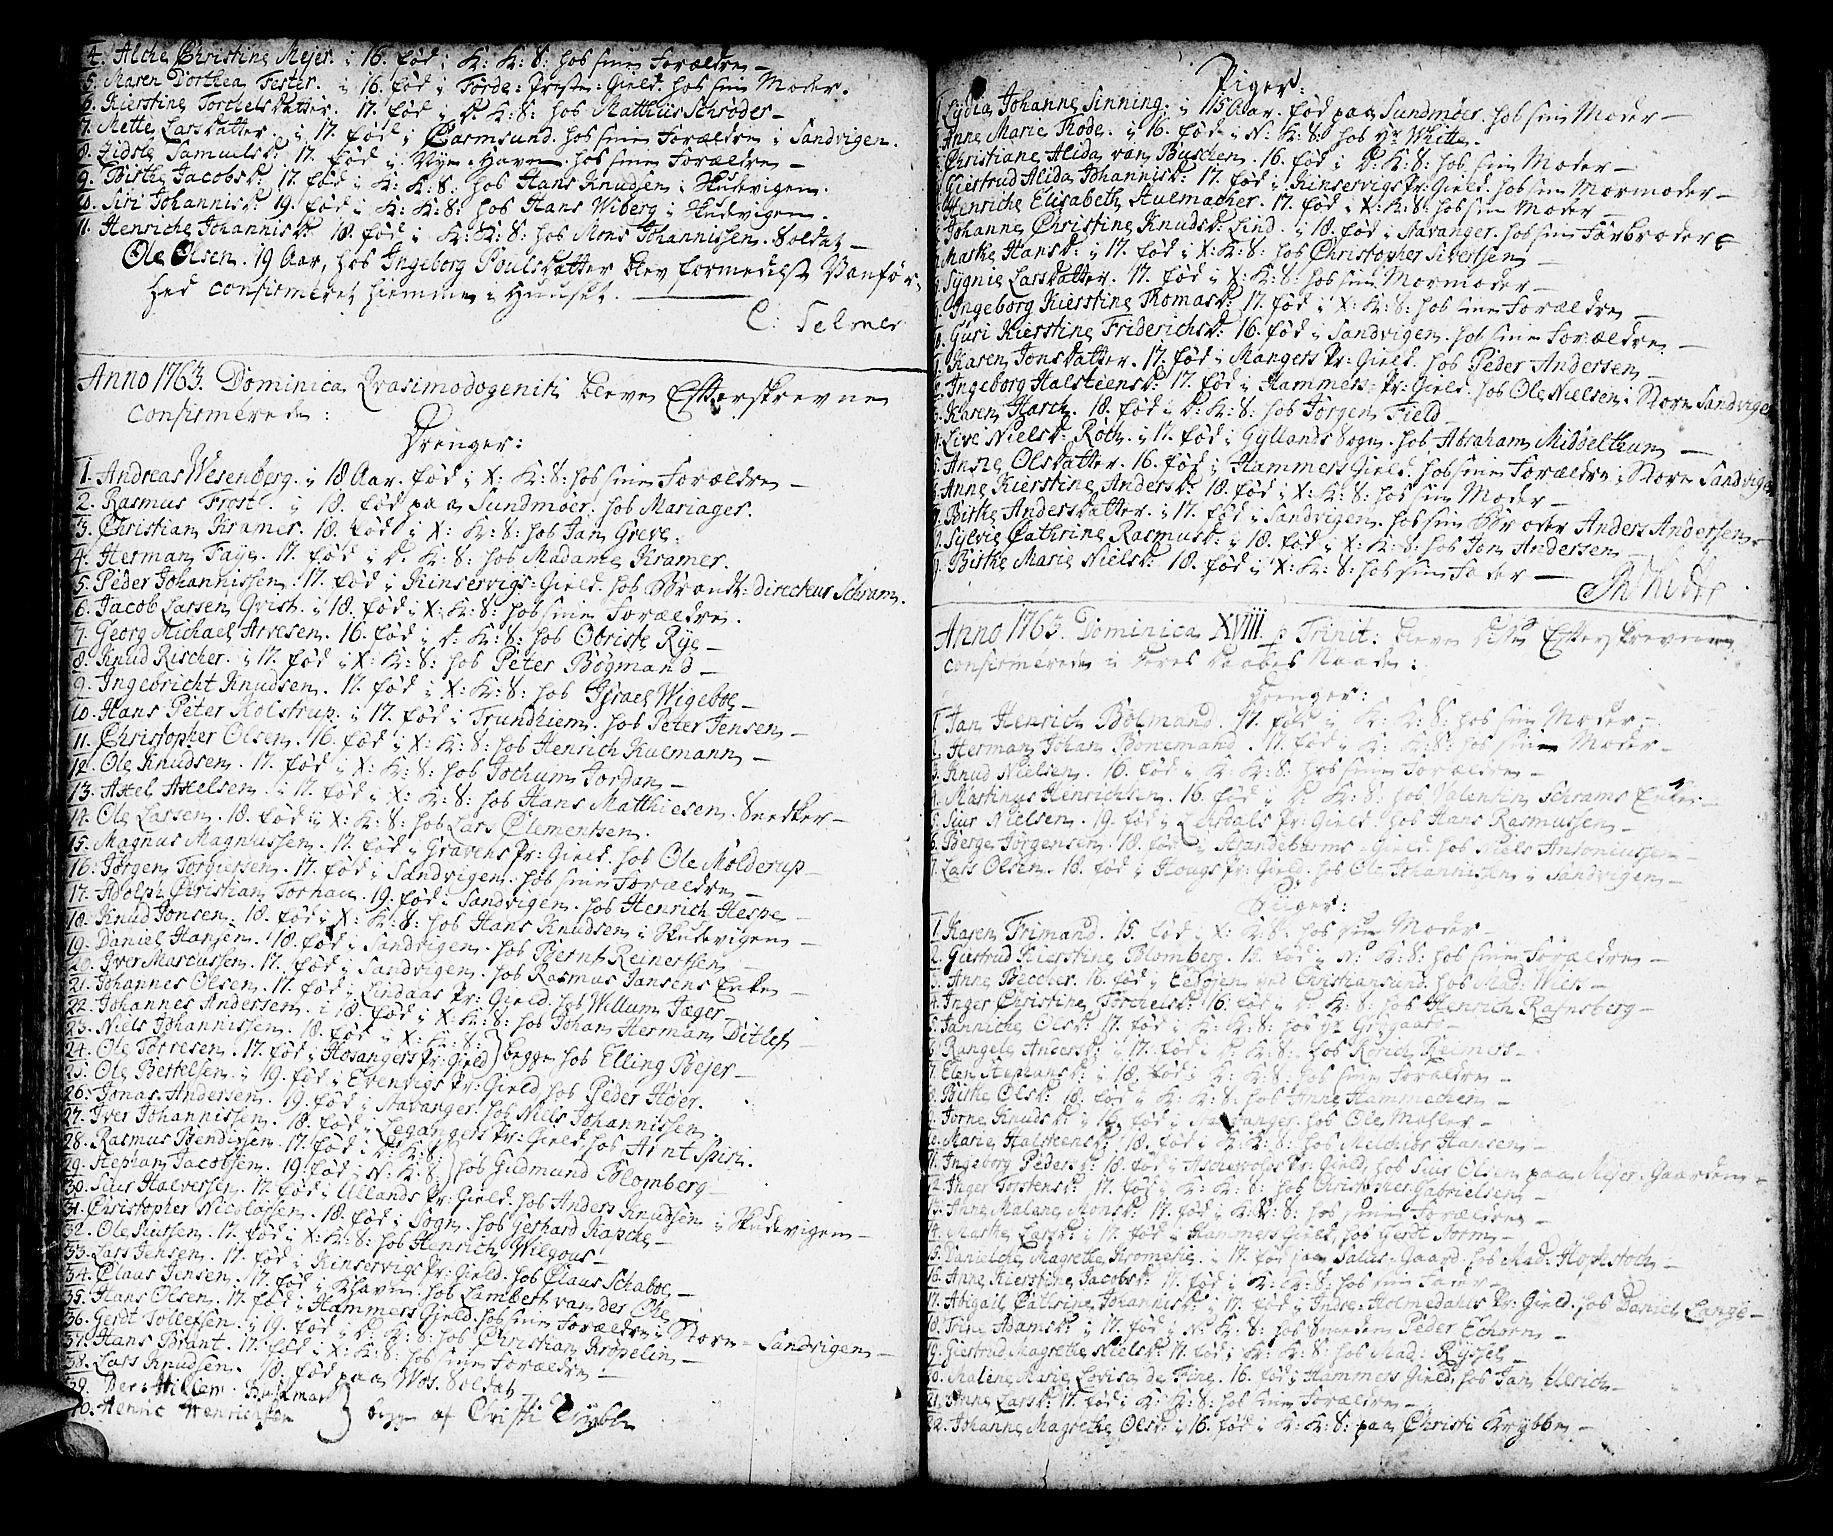 4. Alche Christine Mejer. i 16. fød i K: K: S: hos sine Forældre —
5. Maren Dorthea Fester. i 16. fød i Førde: Præste: Gield. hos sin Moder.
6. Kierstine Torchelsdatter. 17. fød i D. K: S: hos Matthiis Schrøder —
7. Mette Larsdatter. i 17. fød i Carmsund. hos sine Forældre i Sandvigen.
8. Zidsle Samuelsd: 17. fød i Nye-Havn. hos sine Forældre —
9. Birthe Jacobsd: 17. fød i K: K: S: hos Hans Knudsen i Skudevigen.
10. Siri Johannisd: 19. fød i K: K: S: hos Hans Wiberg i Skudevigen.
11. Henriche Johannisd: 18. fød i K: K: S: hos Mons Johannissen. Soldat —
Ole Olsen. 19 Aar, hos Ingeborg Poulsdatter blev formedelst Vanfør-
hed confirmeret hiemme i Huuset.
C: Selmer
Anno 1763. Dominica Qvasimodogeniti bleve Efterskrevne
confirmerede:
Drenger:
1. Andreas Wesenberg. i 18 Aar. fød i X: K: S: hos sine Forældre —
2. Rasmus Frost. i 18. fød paa Sundmøer. hos Mariager.
3. Christian Kramer. 18. fød i X: K: S: hos Jan Greve.
4. Herman Faye. 17. fød i D. K: S: hos Madame Kramer.
5. Peder Johannissen. 17. fød i Kinservigs: Gield. hos Brandt: Directeur Schram.
6. Jacob Larsen Qvist. i 18. fød i X: K: S: hos sine Forældre.
7. Georg Michael Arvesen. 16. fød i D: K: S: hos Obriste Rye —
8. Knud Rischer. i 17. fød i X: K: S: hos Peter Bøgmand —
9. Ingebricht Knudsen. 17. fød i X: K: S: hos Israel Wigeboe —
10. Hans Peter Holstrup. i 17. fød i Trundhiem. hos Peter Jensen —
11. Christopher Olsen. 16. fød i X: K: S: hos Henrich Kulmann —
12. Ole Knudsen. 17. fød i X: K: S: hos Jochum Jordan —
13. Axel Axelsen. i 17. fød i X: K: S: hos Hans Matthiesen. Snedker —
14. Ole Larsen. 18. fød i X: K: S: hos Lars Clementsen.
15. Magnus Magnussen. 17. fød i Gravens Pr: Gield. hos Ole Molderup
16. Jørgen Torgiersen. 17. fød i Sandvigen. hos sine Forældre —
17. Adolph Christian Tornau. 19. fød i Sandvigen. hos Henrich Hespe —
18. Knud Jonsen. 18. fød i X: K: S: hos Hans Knudsen i Skudevigen —
19. Daniel Hansen. 18. fød i Sandvigen. hos Bernt Reinertsen —
20. Iver Marcussen. 17. fød i Sandvigen. hos Rasmus Jansens Enke —
21. Johannes Olsen. 17. fød i Lindaas Pr: Gield. hos Willum Jæger
22. Johannes Andersen. i 18. fød i X: K: S: hos Johan Herman Ditlef —
23. Niels Johannissen. 18. fød i X: K: S:
24. Ole Torresen. 17. fød i Hosangers Pr: Gield } begge hos Elling Bejer —
25. Ole Bertelsen. i 19. fød i Evenvigs Pr: Gield. hos Peder Høier.
26. Jonas Andersen. 19. fød i Stavanger. hos Niels Johannissen.
27. Iver Johannissen. 18. fød i Legangers Pr: Gield. hos Arnt Spirn.
28. Rasmus Bendixsen. 17. fød i D: K: S:
29. Stephan Jacobsen. 19. fød i N: K: S: } hos Gudmund Blomberg —
30. Siur Halversen. 17. fød i Ullands Pr: Gield. hos Anders Knudsen i Skudevigen —
31. Christopher Nicolassen. 18. fød i Sogn. hos Gerhard Kapche —
32. Ole Siursen. 17. fød i X: K: S: hos Henrich Wilgous
33. Lars Jensen. 17. fød i Kinservigs Pr: Gield. hos Claus Schaboe —
34. Claus Jensen. 17. fød i Khavn. hos Lambert van der Ohe —
35. Hans Olsen. 17. fød i Hammers Gield. hos sine Forældre i Storm-Sandvigen —
36. Gerdt Tollefsen. i 19. fød i D: K: S: hos Christian Krøpelin —
37. Hans Brant. 17. fød i X: K: S: hos sine Forældre —
38. Lars Knudsen. 18. fød paa Wos. Soldat
39. Willem
40. Henric Henricksen } begge af Christi Krybbe
Piger:
Lydia Johanne Sinning. i 15 Aar. fød paa Sundmøer. hos sin Moder —
Anne Marie Thode. i 16. fød i N: K: S: hos Hr Witte.
Christiane Alida van Büschen. 16. fød i D: K: S: hos sin Moder —
Giertrud Alida Johannisd: 17. fød i Kinservigs Pr: Gield. hos sin Mormoder —
Henriche Elisabeth Huemacher. 17. fød i X: K: S: hos sin Moder —
Johanne Christine Knudsd: Lind. i 18. fød i Stavanger. hos sin Farbroder —
Marthe Hansd: i 17. fød i X: K: S: hos Christopher Sivertsen —
Sygnie Larsdatter. 17. fød i X: K: S: hos sin Mormoder —
Ingeborg Kierstine Thomasd: 17. fød i X: K: S: hos sine Forældre —
Guri Kierstine Friderichsd: 16. fød i Sandvigen. hos sine Forældre —
Karen Jonsdatter. 17. fød i Mangers Pr: Gield. hos Peder Andersen —
Ingeborg Halsteensd: 17. fød i Hammers: Pr: Gield. hos Ole Nielsen i Storm Sandvigen
Karen Harch. 18. fød i D: K: S: hos Jørgen Field
Live Nielsd: Roth. i 17. fød i Gyllands Sogn. hos Abraham Middelthun —
Ansie Olsdatter. 16. fød i Hammers Gield. hos sine Forældre i Storm Sandvigen
Anne Kierstine Andersd: 18. fød i X: K: S: hos sin Moder —
Birthe Andersdatter. i 17. fød i Sandvigen. hos sin Broder Anders Andersen —
Sylvie Cathrine Rasmusd: i 18. fød i X: K: S: hos Jon Andersen —
Birthe Marie Nielsd: 18. fød i X: K: S: hos sin Fader —
Anno 1763. Dominica XVIII. p Trinit: bleve disse Efterskrevne
confirmerede i deres Daabes Naade:
Drenger:
1. Jan Henrich Bolmand. 17. fød i K: K: S: hos sin Moder —
2. Herman Johan Bonemand. 17. fød i K: K: S: hos sin Moder —
3. Knud Nielsen. 16. fød i K: K: S: hos sine Forældre —
4. Martinus Henrichsen. 16. fød i D: K: S: hos Valentin Schrams Enke. —
5. Siur Nielsen. 19. fød i Lærdals Pr: Gield. hos Hans Rasmussen —
6. Børge Jørgensen. 18. fød i Strandebarms-Gield. hos Niels Antoniussen —
7. Lars Olsen. 18. fød i Hougs Pr: Gield. hos Ole Johannissen i Sandvigen —
Piger:
1. Karen Frimand. 15. fød i X: K: S: hos sin Moder —
2. Giertrud Kierstine Blomberg. 15. fød i N: K: S: hos sine Forældre —
3. Anne Beccher. 16. fød i Edøjen ved Christiansund. hos Mad: Wich —
4. Inger Christine Torchelsd: 16. fød i D: K: S: hos Henrich Rafnsberg —
5. Jannicke Olsd: 17. fød i K: K: S: hos Hr Grygaar —
6. Rangele Andersd: i 17. fød i D: K: S: hos Korich Reimers —
7. Elen Stephansd: i 18. fød i K: K: S: hos sine Forældre —
8. Birthe Olsd: 18. fød i K: K: S: hos Anne Hammechen —
9. Jorne Knudsd: i 16. fød i Stavanger. hos Ole Møller —
10. Marie Halsteensd: 18. fød i K: K: S: hos Melchior Hansen —
11. Ingeborg Pedersd: 18. fød i Aschevolds Pr: Gield, hos Siur Olsen paa Mejer-Gaarden —
12. Inger Torstensd: 17. fød i K: K: S: hos Christopher Gabrielsen —
13. Anne Malene Monsd: 17. fød i K: K: S: hos sine Forældre —
14. Marthe Larsd: i 17. fød i Hammers Gield, hos Gerdt Torm —
15. Danielche Magrethe Kromethe. i 17. fød paa Salus-Gaard. hos Mad: Hopstoch —
16. Anne Kierstine Jacobsd: 17. fød i K: K: S: hos sin Fader —
17. Abigail Cathrine Johannisd: i 17. fød i Indre-Holmedahls Pr: Gield. hos Daniel Lange —
18. Trine Adamsd: i 17. fød i N: K: S: hos Smeden Peder Echorn —
19. Giertrud Magrethe Nielsd: 17. fød i K: K: S: hos Mad: Ryssel —
20. Malene Marie Lovisa de Fine. 16. fød i Hammers Gield, hos Jan Ulrich —
21. Anne Larsd: 17. fød i K: K: S: hos sine Forældre —
22. Johanne Magrethe Olsd: i 16. fød i K: K: S: paa Christi Krybbe —